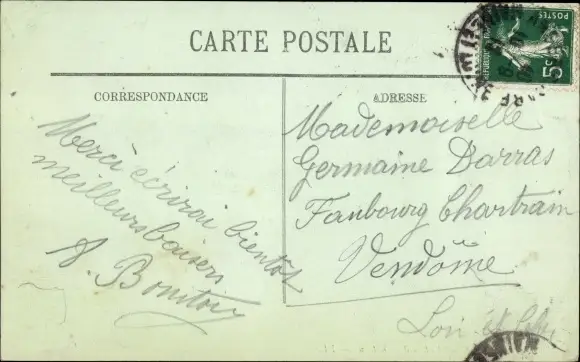 CARTE POSTALE
CORRESPONDANCE
Merci écrirai bientôt
meilleurs baisers
ADRESSE
Mademoiselle
Germaine Darras
Faubourg Chartrain
Vendôme
Loir et Cher
POSTES
5c